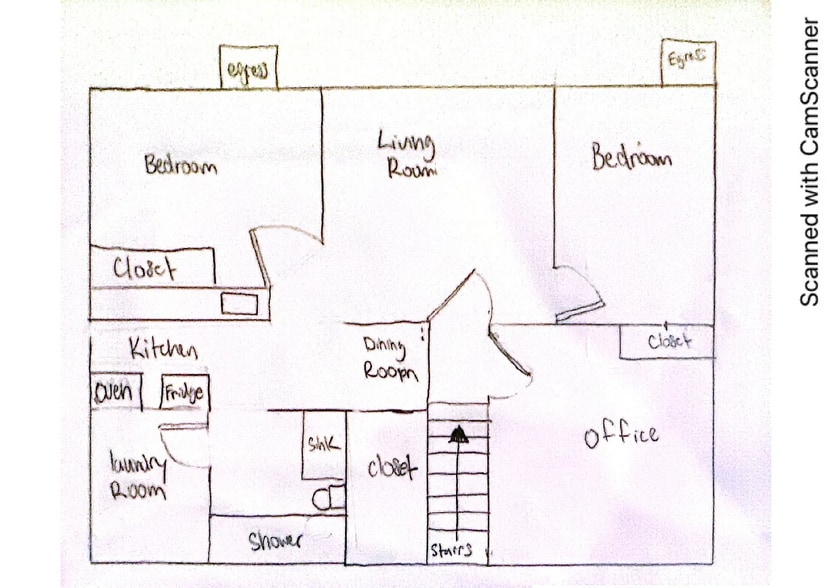 egress
Egress
Bedroom
Living
Room
Bedroom
Closet
Closet
Kitchen
Dining
Room
Oven
Fridge
Sink
closet
office
laundry
Room
Shower
Stairs
Scanned with CamScanner